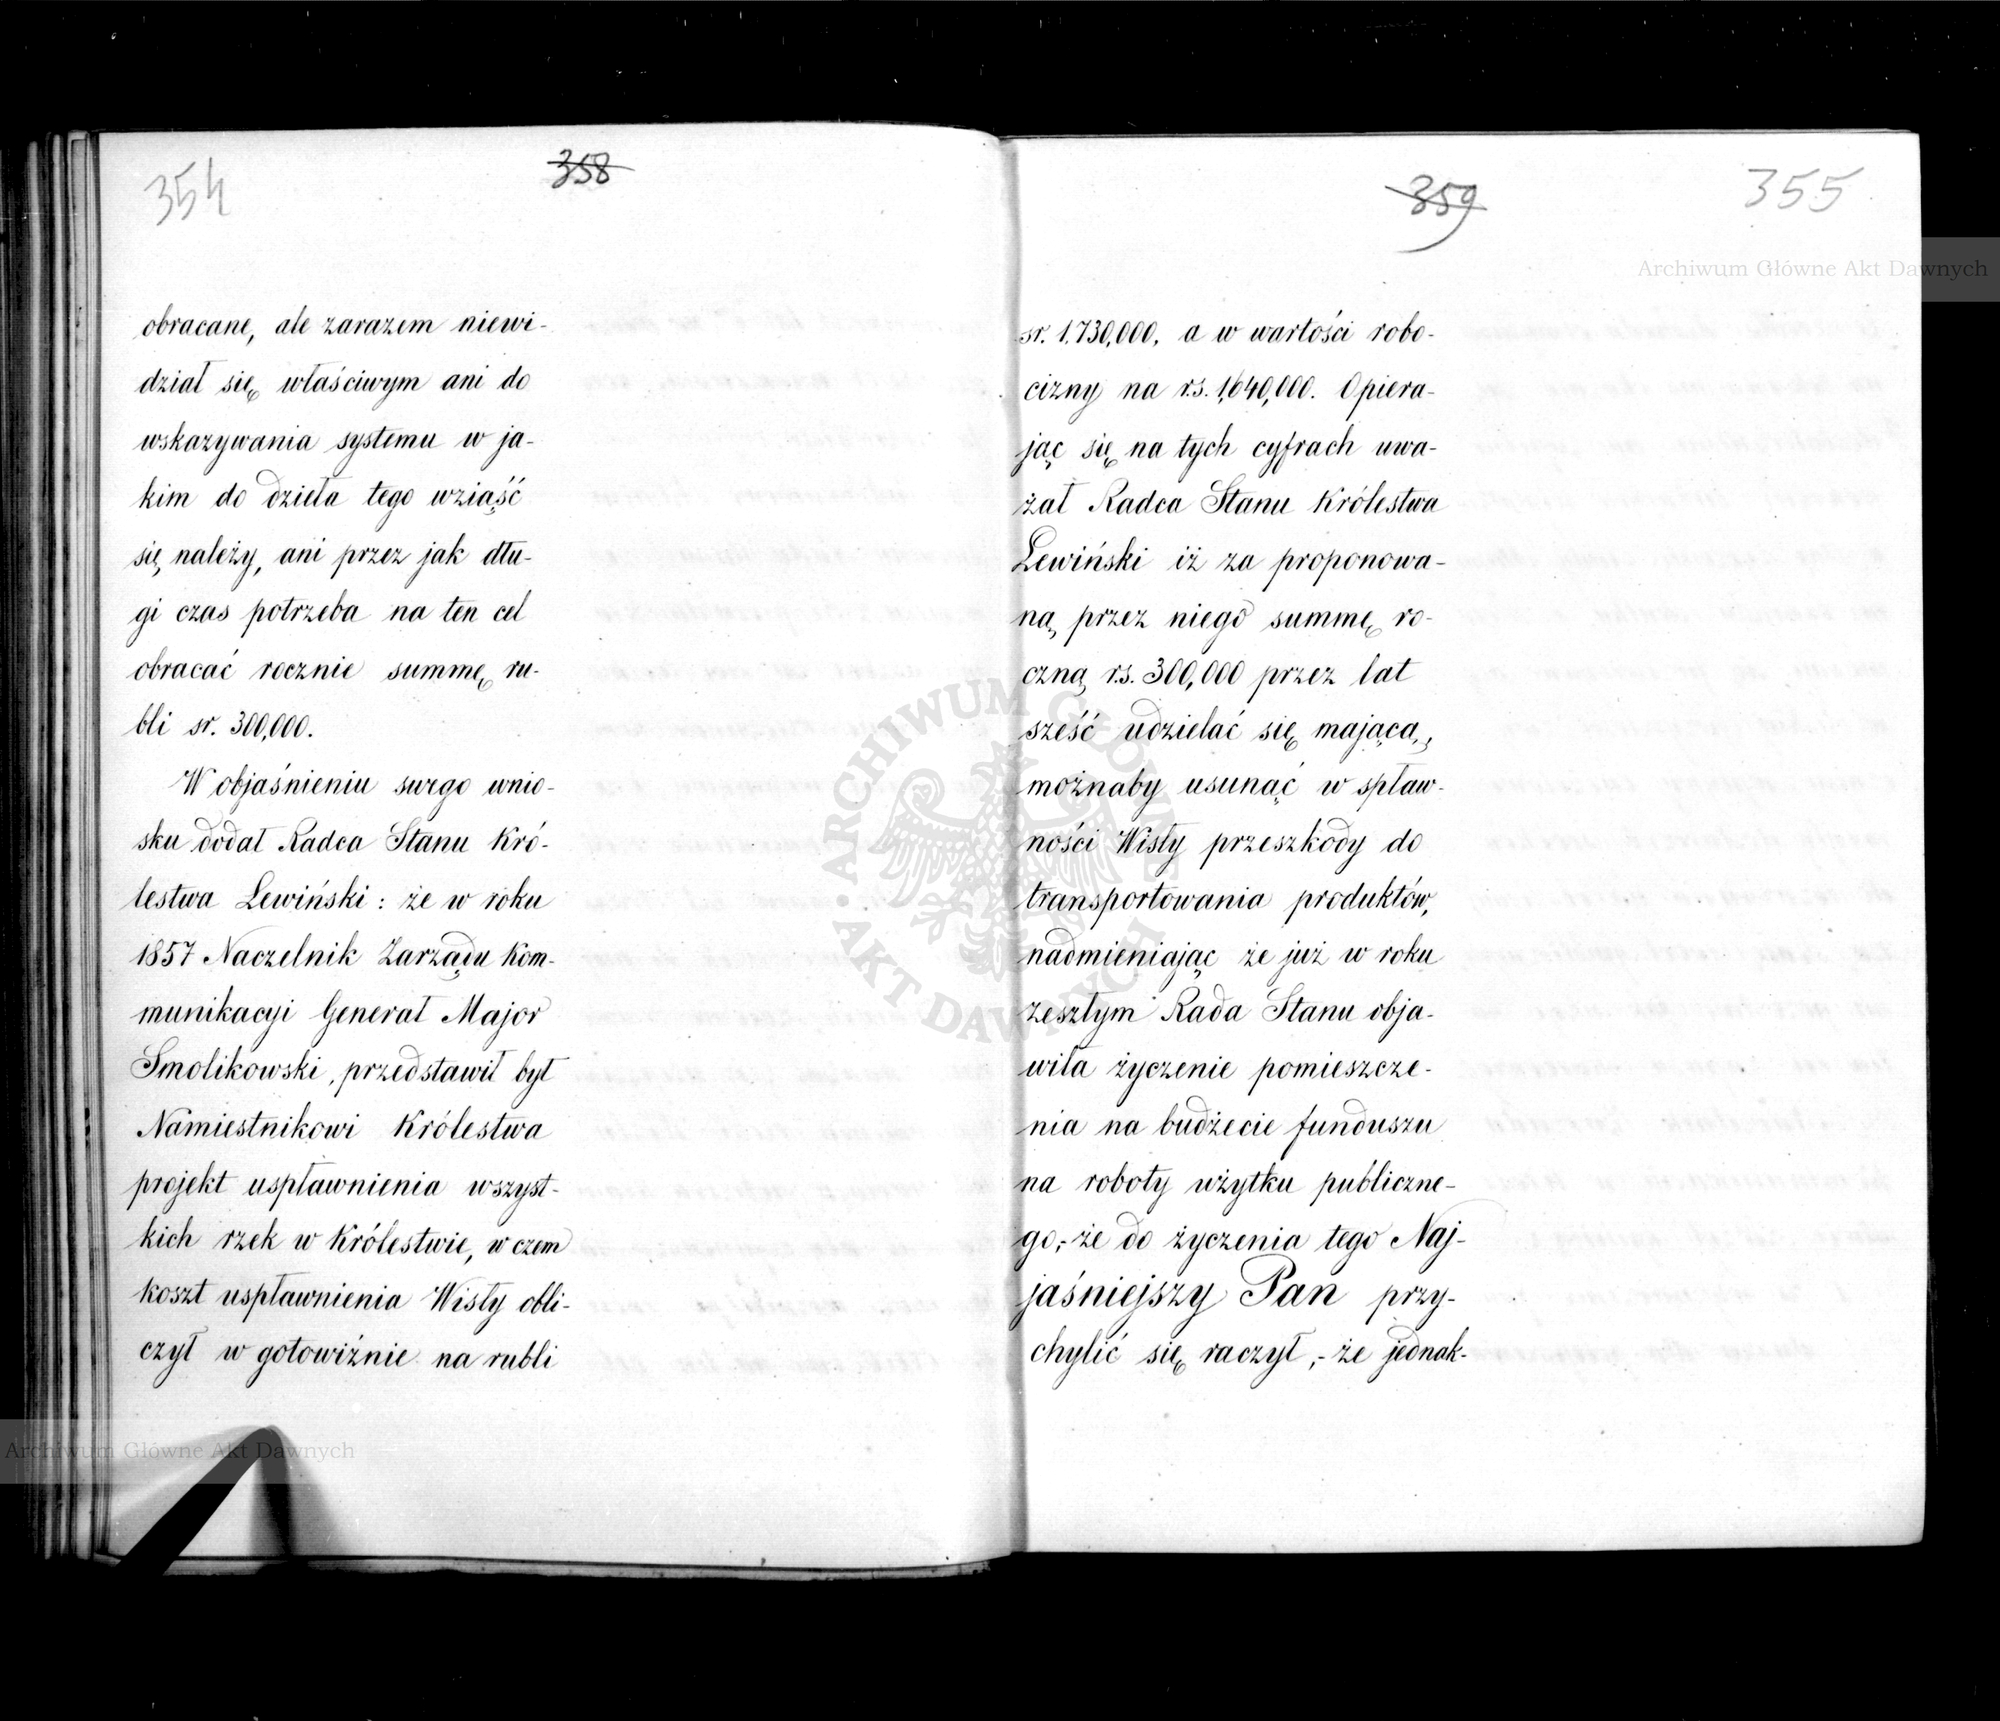 354
358
obracane, ale zarazem niewi-
dział się właściwym ani do
wskazywania systemu w ja-
kim do dzieła tego wziąść
się należy, ani przez jak dłu-
gi czas potrzeba na ten cel
obracać rocznie summę ru-
bli sr. 300,000.
W objaśnieniu swego wnio-
sku dodał Radca Stanu Kró-
lestwa Lewiński: że w roku
1857 Naczelnik Zarządu Kom-
munikacyi Generał Major
Smolikowski, przedstawił był
Namiestnikowi Królestwa
projekt uspławnienia wszyst-
kich rzek w Królestwie, w czem
koszt uspławnienia Wisły obli-
czył w gotowiźnie na rubli
359
355
sr. 1,730,000, a w wartości robo-
cizny na rs. 1,640,000. Opiera-
jąc się na tych cyfrach uwa-
żał Radca Stanu Królestwa
Lewiński iż za proponowa-
ną przez niego summę ro-
czną rs. 300,000 przez lat
sześć udzielać się mającą,
możnaby usunąć w spław-
ności Wisły przeszkody do
transportowania produktów,
nadmieniając że już w roku
zeszłym Rada Stanu obja-
wiła życzenie pomieszcze-
nia na budżecie funduszu
na roboty użytku publiczne-
go,- że do życzenia tego Naj-
jaśniejszy Pan przy-
chylić się raczył,- że jednak-
Archiwum Główne Akt Dawnych
Archiwum Główne Akt Dawnych
ARCHIWUM GŁÓWNE AKT DAWNYCH